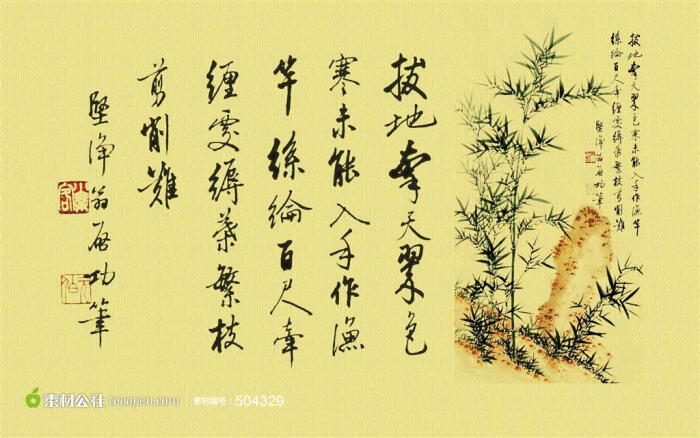 拔地參天翠色
寒未能入手作漁
竿絲綸百尺牽
纏處縟葉繁枝
剪削難
堅淨翁啓功筆
拔地參天翠色寒未能入手作漁竿
絲綸百尺牽纏處縟葉繁枝剪削難
堅淨翁啓功筆
素材公社 tooopen.com 素材编号：504329